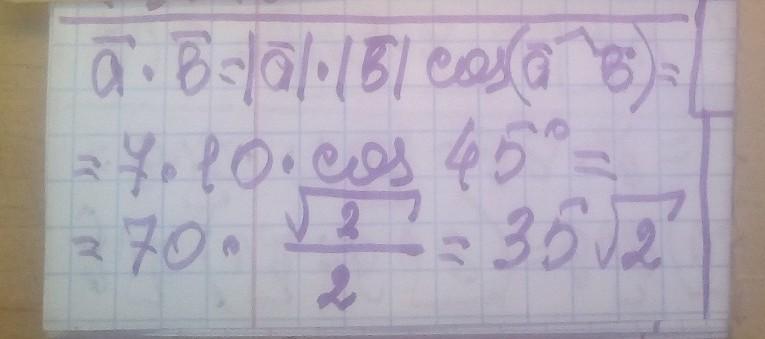 a̅ · b̅ = |a̅| · |b̅| cos(a̅ ^ b̅) =
= 7 · 10 · cos 45° =
= 70 · √2/2 = 35√2